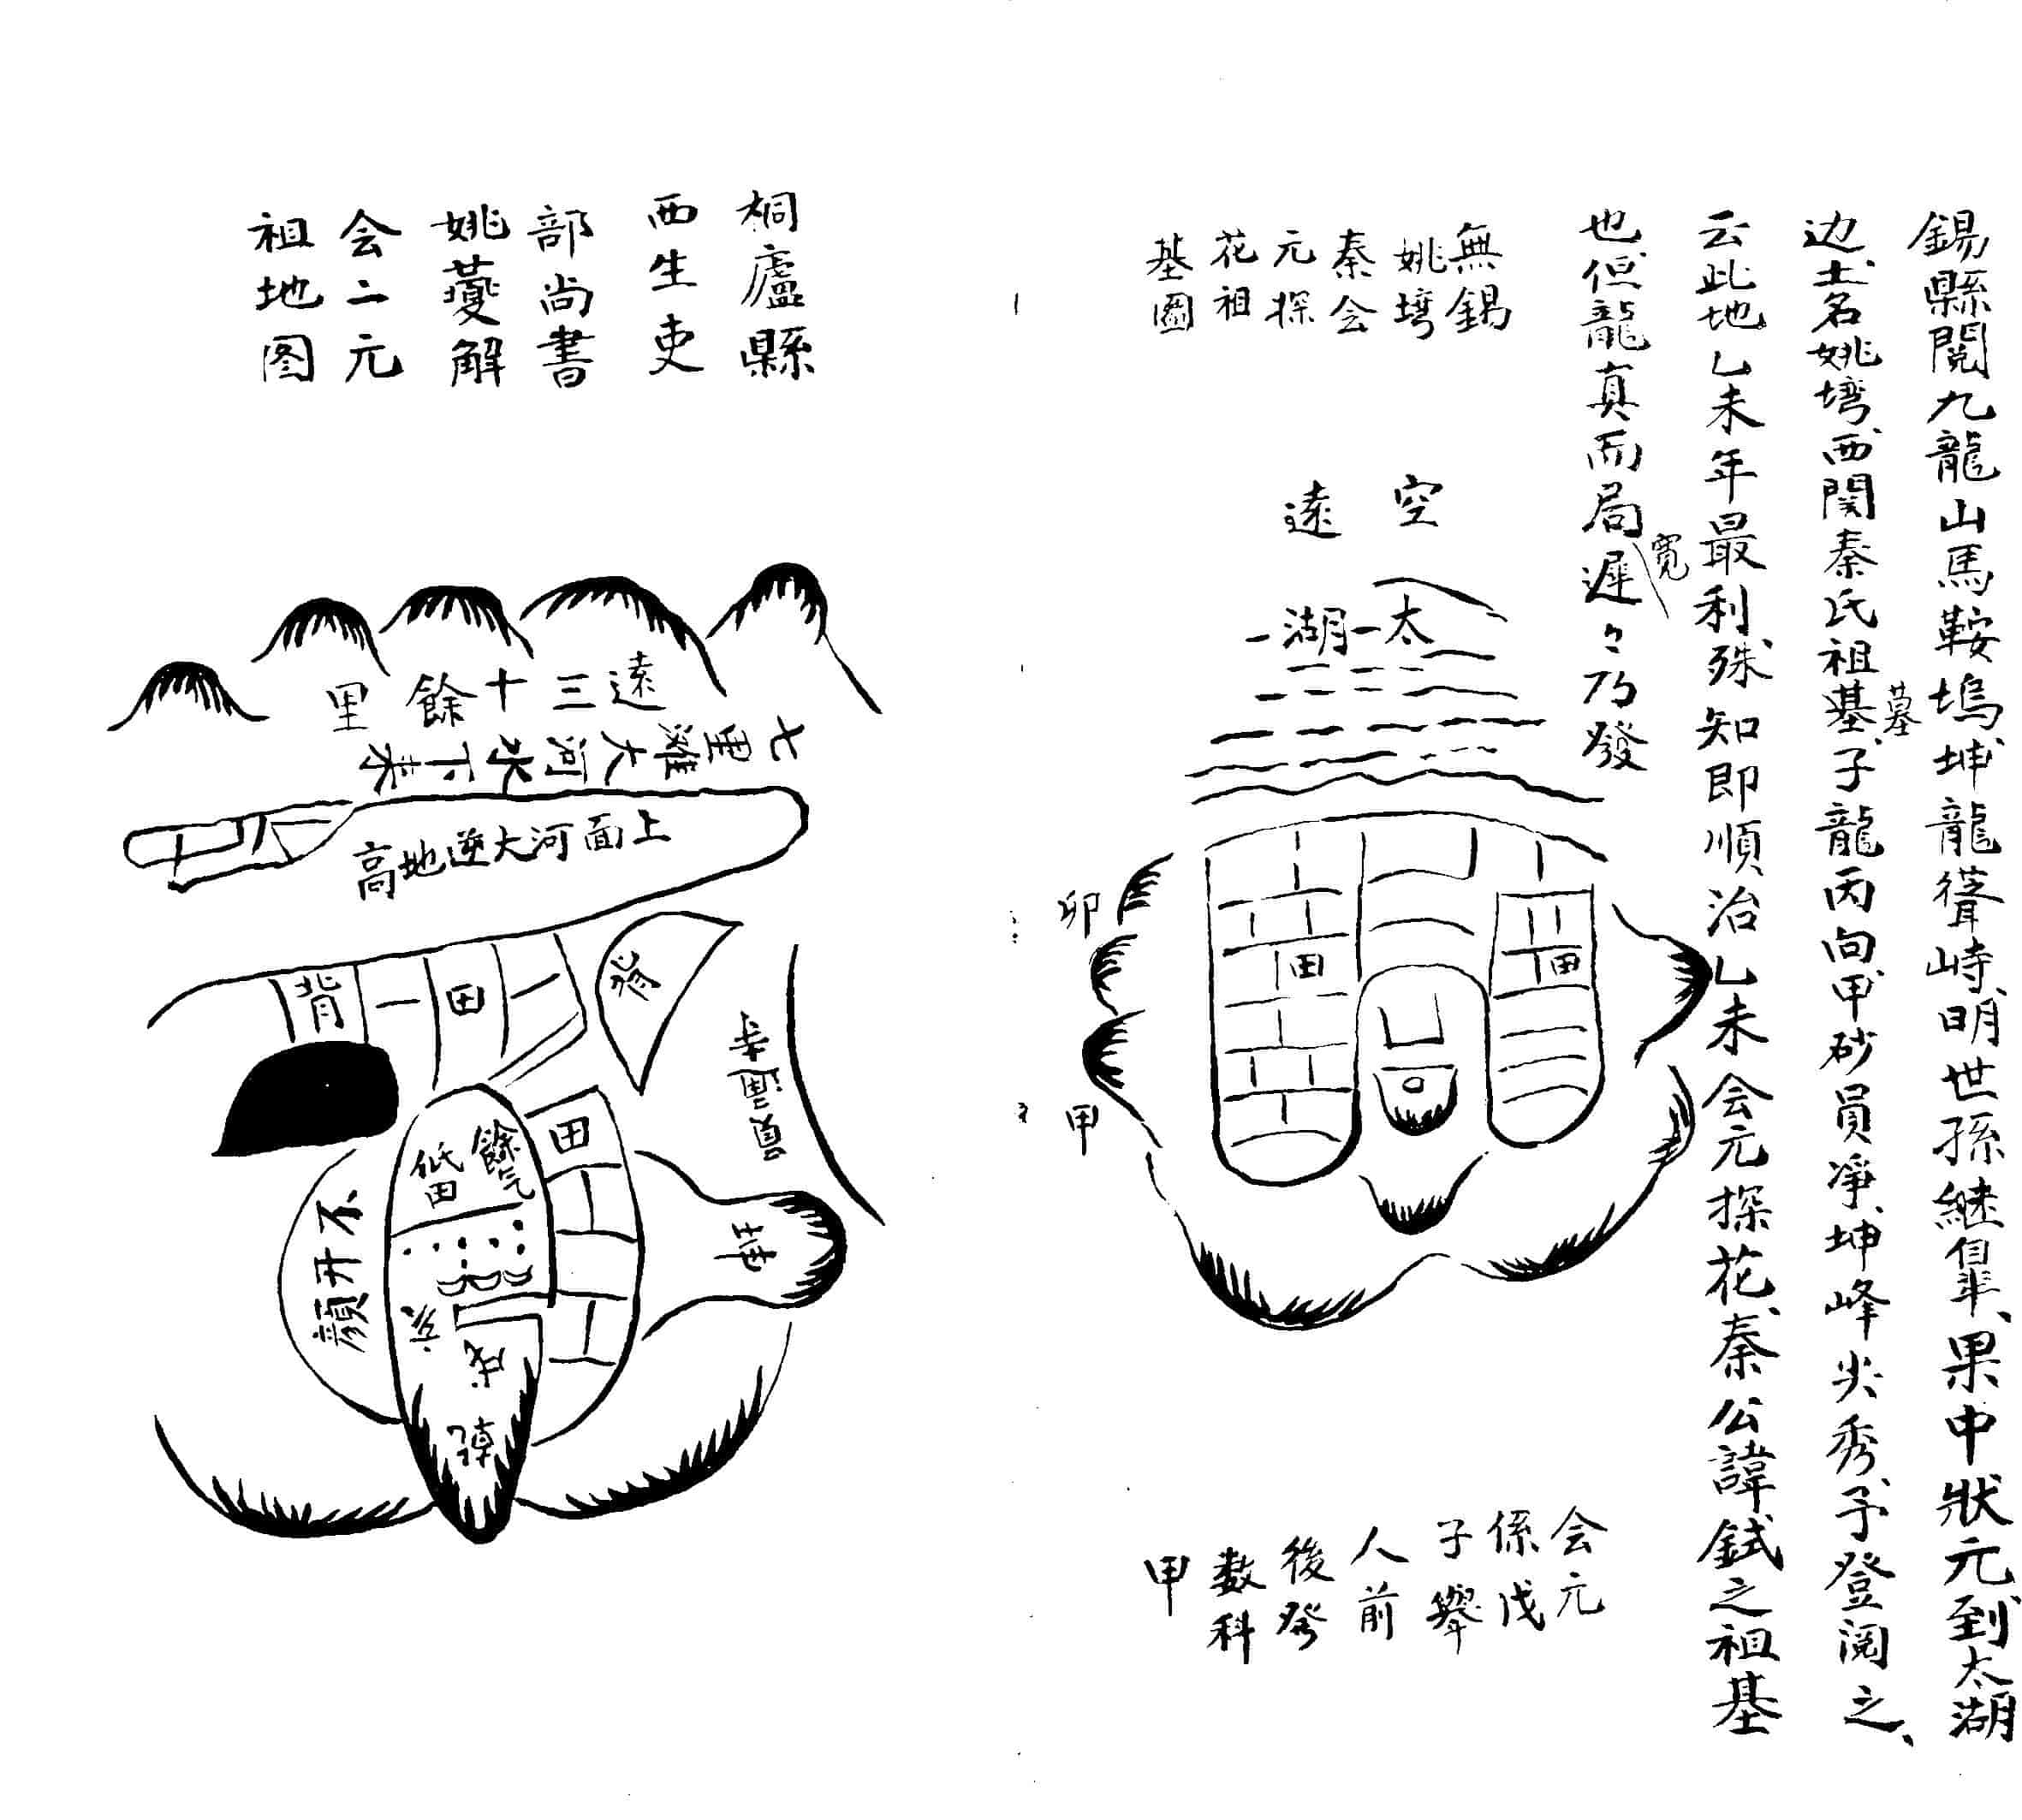 錫縣閱九龍山馬鞍塢坤龍聳峙明世孫継皐果中狀元到太湖
边土名姚塆西関秦氏祖基子龍丙向甲砂員淨坤峰尖秀予登閱之
墓
云此地乙未年最利殊知即順治乙未会元探花秦公諱鉽之祖基
也但龍真而局遲々乃發
寛
無錫
姚塆
秦会
元探
花祖
基圖
空
遠
太湖
卯
甲
田
田
会元
係戊
子舉
人前
後発
数科
甲
桐廬縣
西生吏
部尚書
姚夔解
会二元
祖地图
遠三十餘里
七里灘大河水下来
上面河大逆地高
背
田
背
田
餘气
低田
不开顏
亥